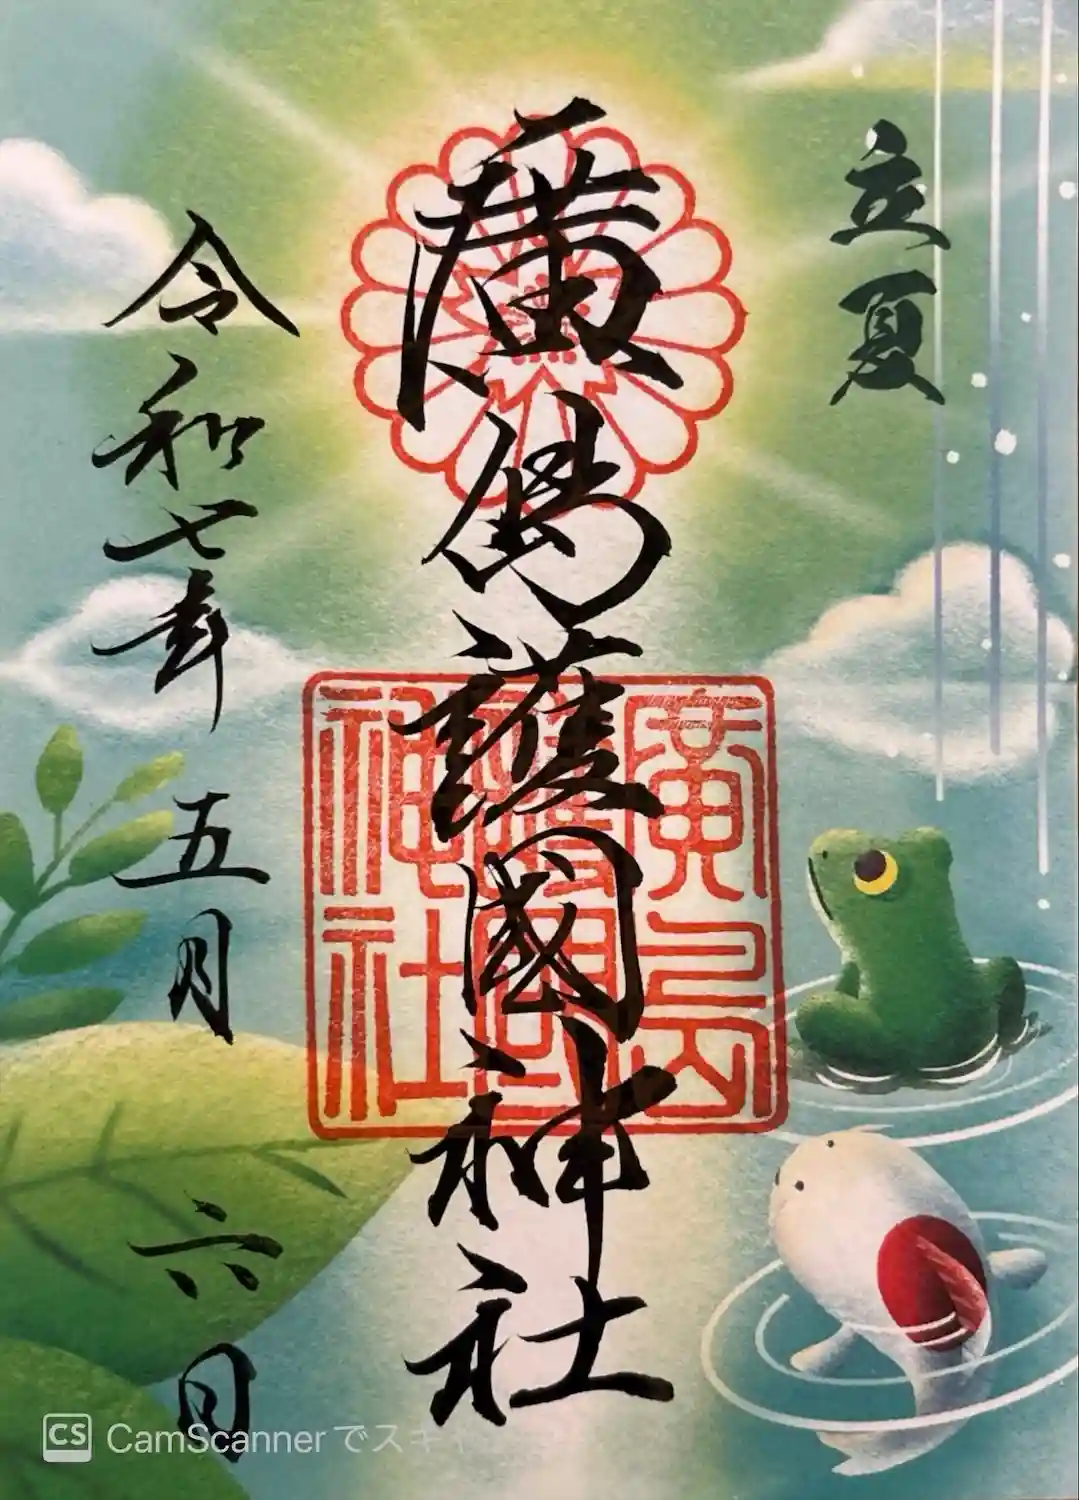 立夏
廣島護國神社
廣島
護國
神社
令和七年五月六日
CS CamScannerでスキ